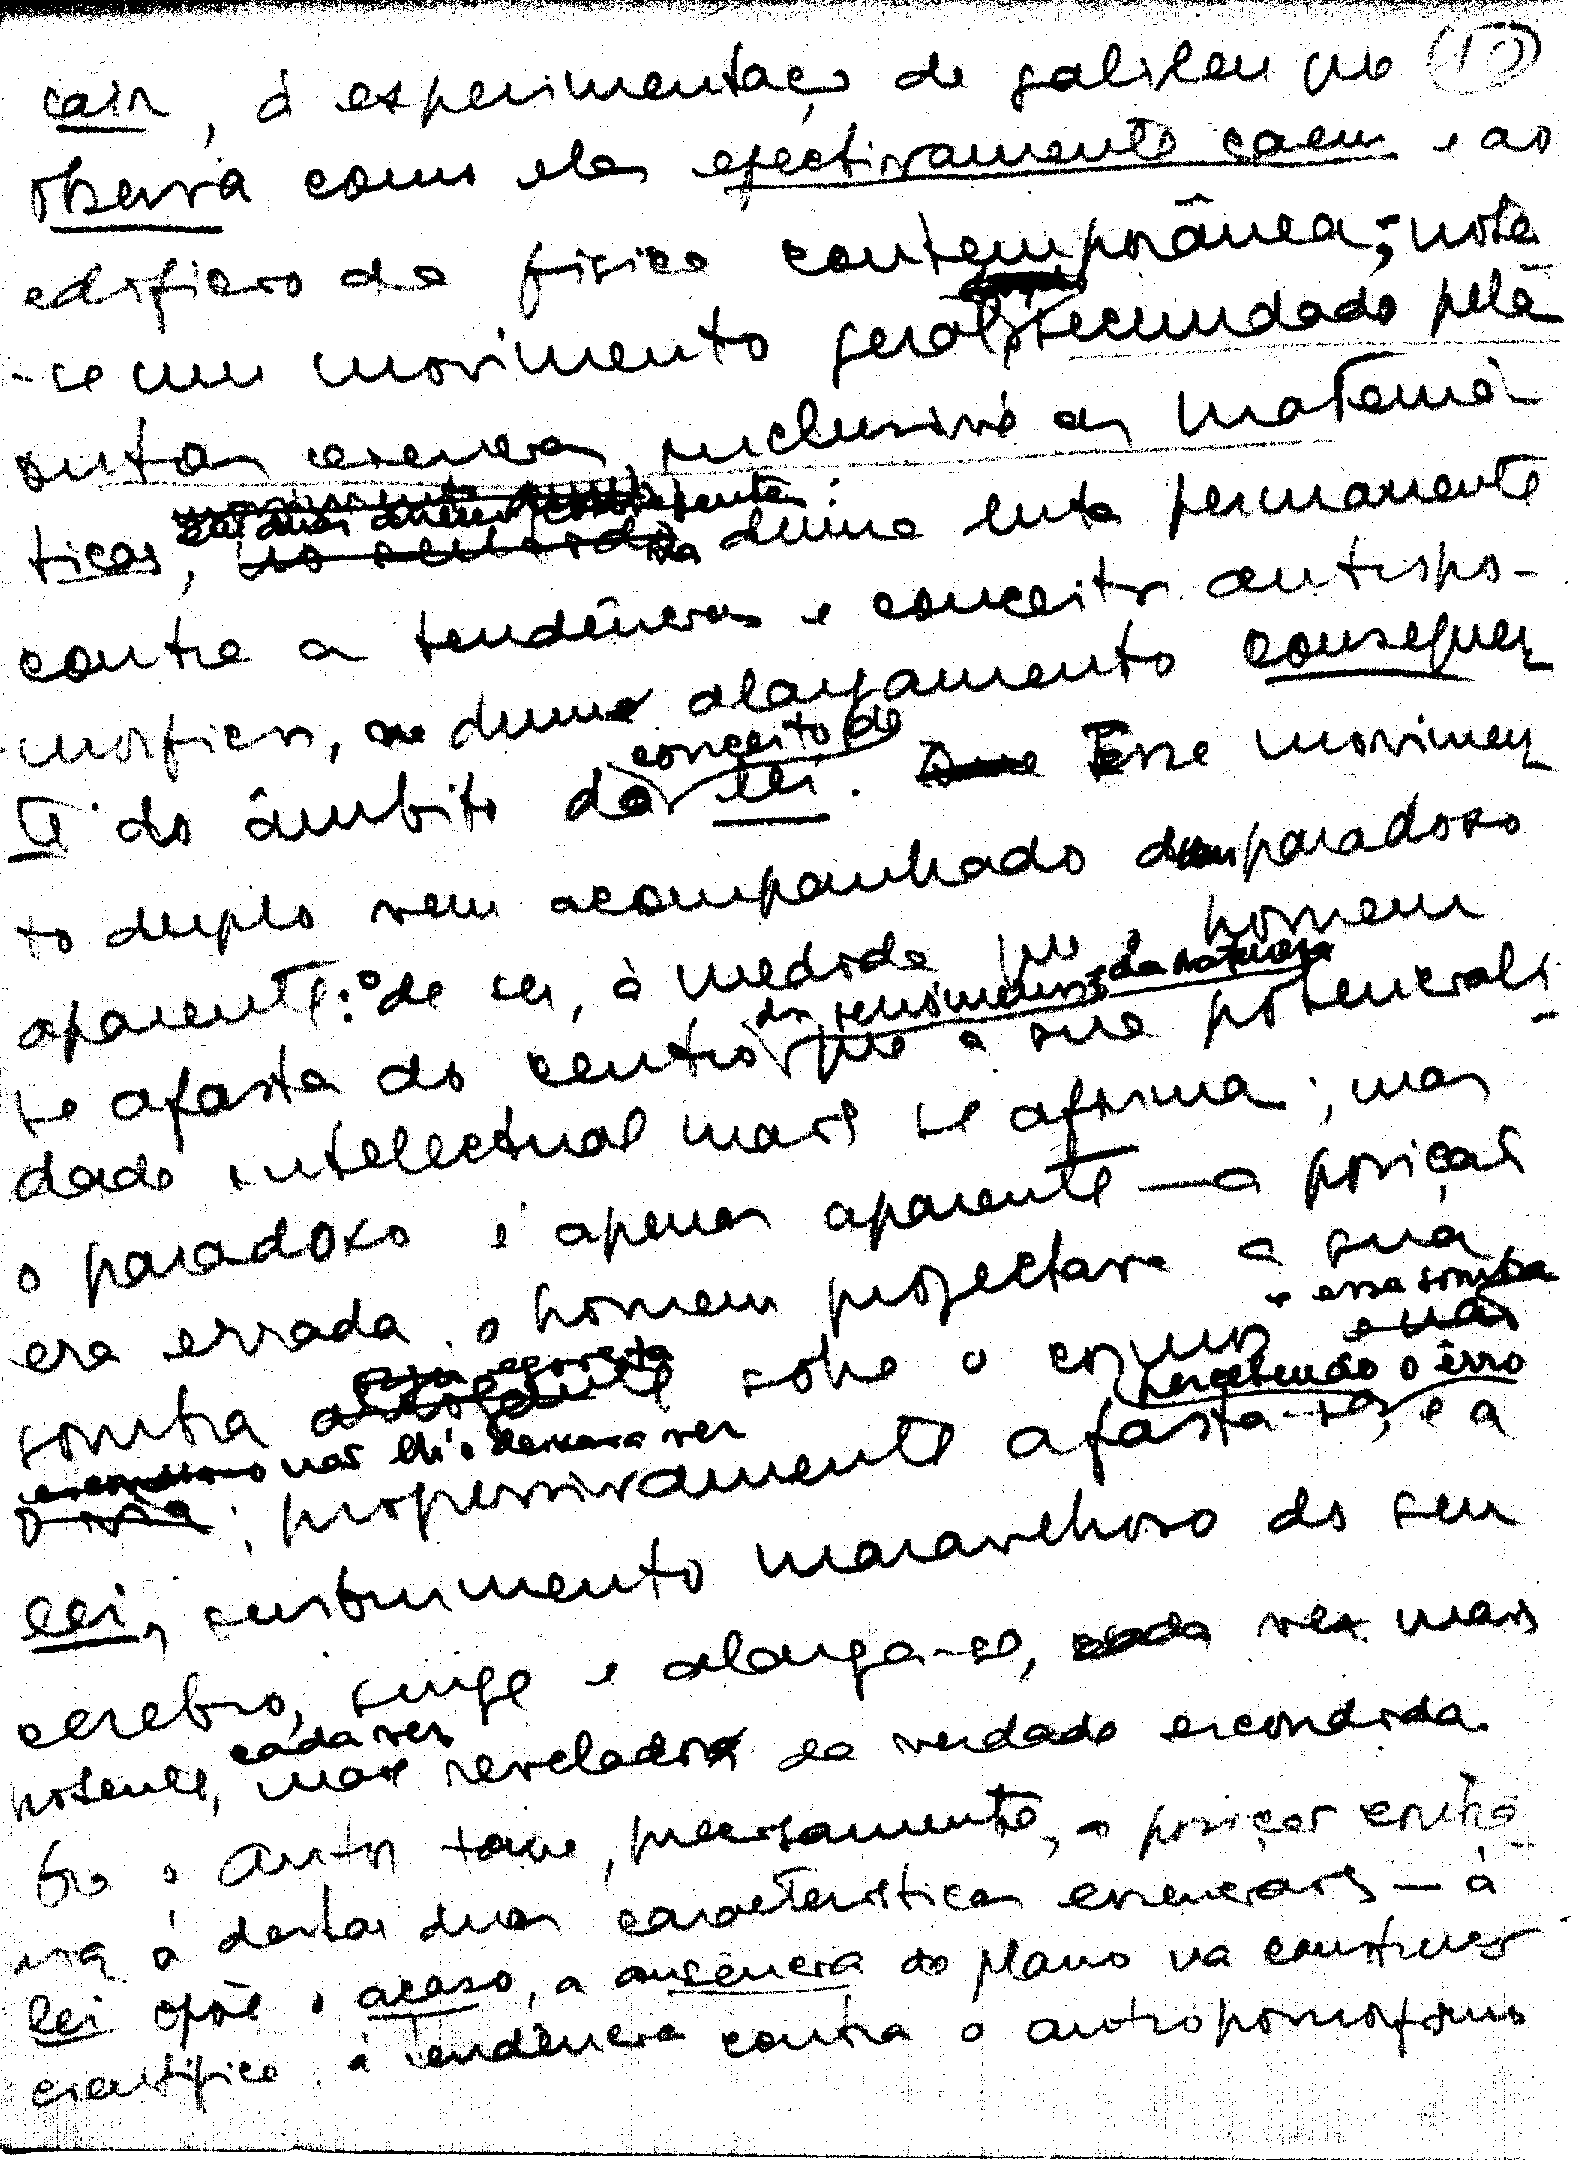 cair, à experimentação de Galileu que (10)
observa como eles efectivamente caem e ao
edifício da física contemporânea; nota
-se um movimento geral, secundado pelas
outras ciências, inclusivé as matemá
ticas, em duas direcções: da duma luta permanente
contra as tendências e conceitos antropo-
mórficos, e dum alargamento conseqüen
te do âmbito do conceito de lei. Esse movimen
to duplo vem acompanhado dum paradoxo
aparente: o de ser, à medida que o homem
se afasta do centro dos fenómenos da natureza que a sua potenciali
dade intelectual mais se afirma; mas
o paradoxo é apenas aparente — a posição
era errada, o homem projectara a sua
sombra sobre o cosmos e essa sombra
não lhe deixava ver
; progressivamente afasta-se, percebendo o êrro, e a
lei, instrumento maravilhoso do seu
cérebro, surge e alarga-se, cada vez mais
potente, cada vez mais reveladora da verdade escondida.
Ora o autor toma, precisamente, a posição contrá
ria à destas duas características essenciais — à
lei opõe o acaso, a ausência do plano na construção
científica, à tendência contra o antropomorfismo